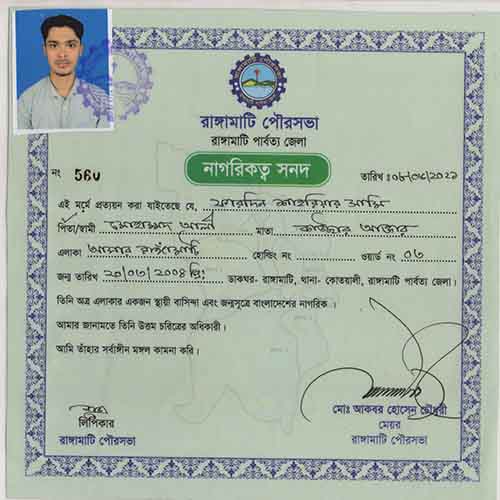 রাঙ্গামাটি পৌরসভা
রাঙ্গামাটি পার্বত্য জেলা
নাগরিকত্ব সনদ
নং ৫৬০ তারিখ :
এই মর্মে প্রত্যয়ন করা যাইতেছে যে,
পিতা/স্বামী মাতা আক্তার
এলাকা হোল্ডিং নং ওয়ার্ড নং ০৬
জন্ম তারিখ ডাকঘর- রাঙ্গামাটি, থানা- কোতয়ালী, রাঙ্গামাটি পার্বত্য জেলা।
তিনি অত্র এলাকার একজন স্থায়ী বাসিন্দা এবং জন্মসূত্রে বাংলাদেশের নাগরিক।
আমার জানামতে তিনি উত্তম চরিত্রের অধিকারী।
আমি তাঁহার সর্বাঙ্গীন মঙ্গল কামনা করি।
লিপিকার
রাঙ্গামাটি পৌরসভা
মোঃ আকবর হোসেন চৌধুরী
মেয়র
রাঙ্গামাটি পৌরসভা